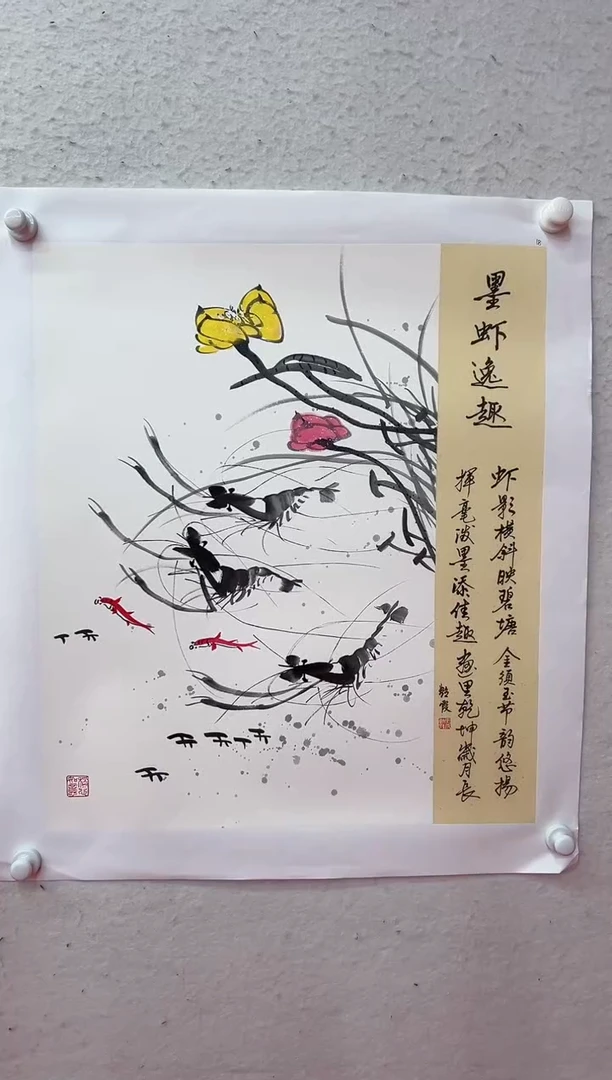 墨虾逸趣
虾影横斜映碧塘 金须玉节韵悠扬
挥毫泼墨添佳趣 画里乾坤歲月長